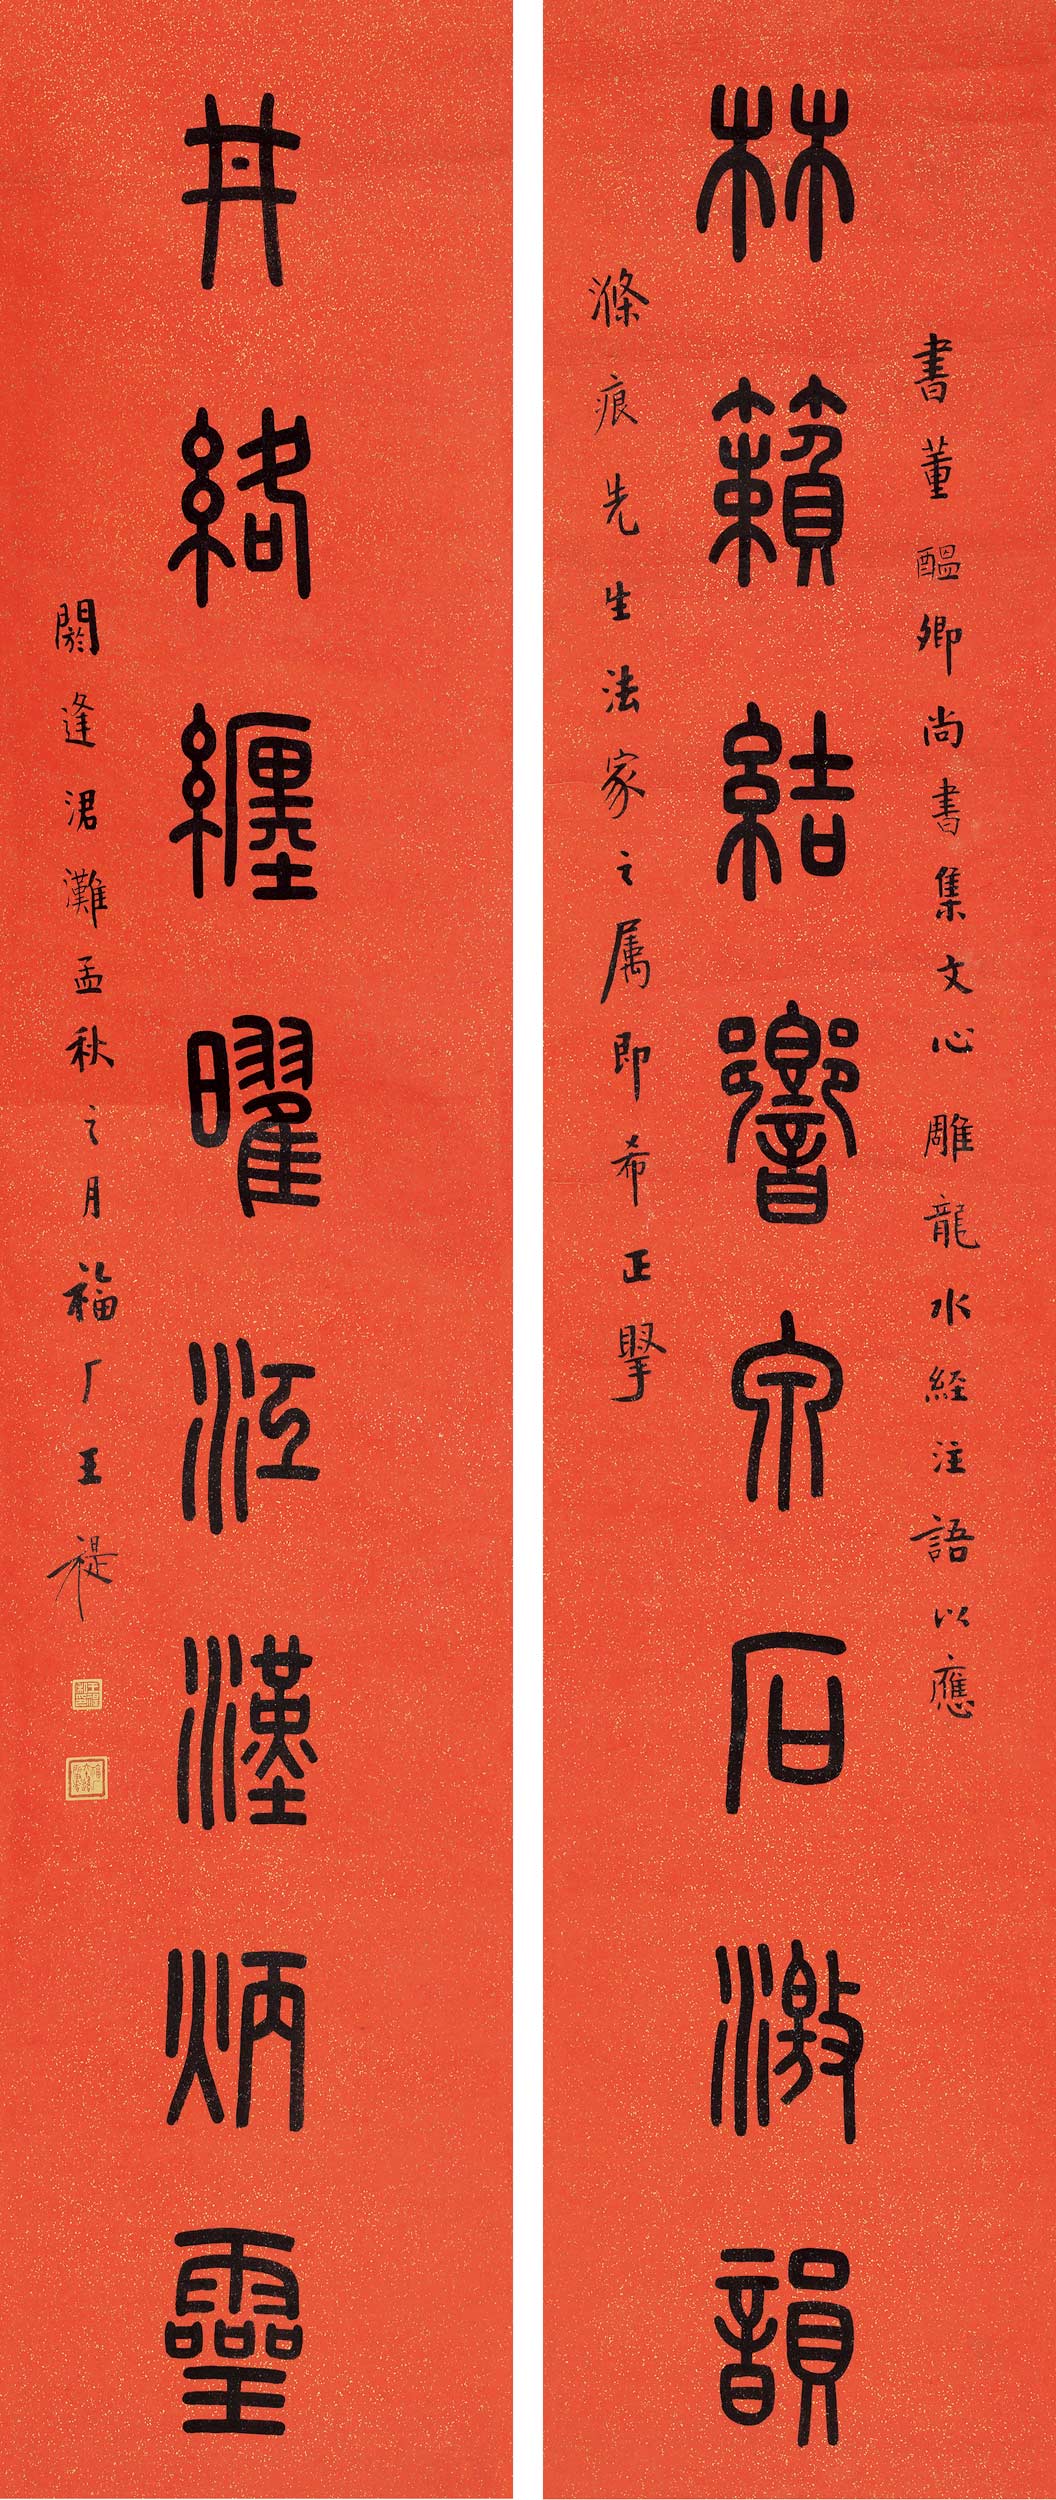 林籟結響泉石激韻
書董醖卿尚書集文心雕龍水経注語以應
滌痕先生法家之属即希正擥
井絡纏曜江漢炳靈
閼逢涒灘孟秋之月福厂王禔